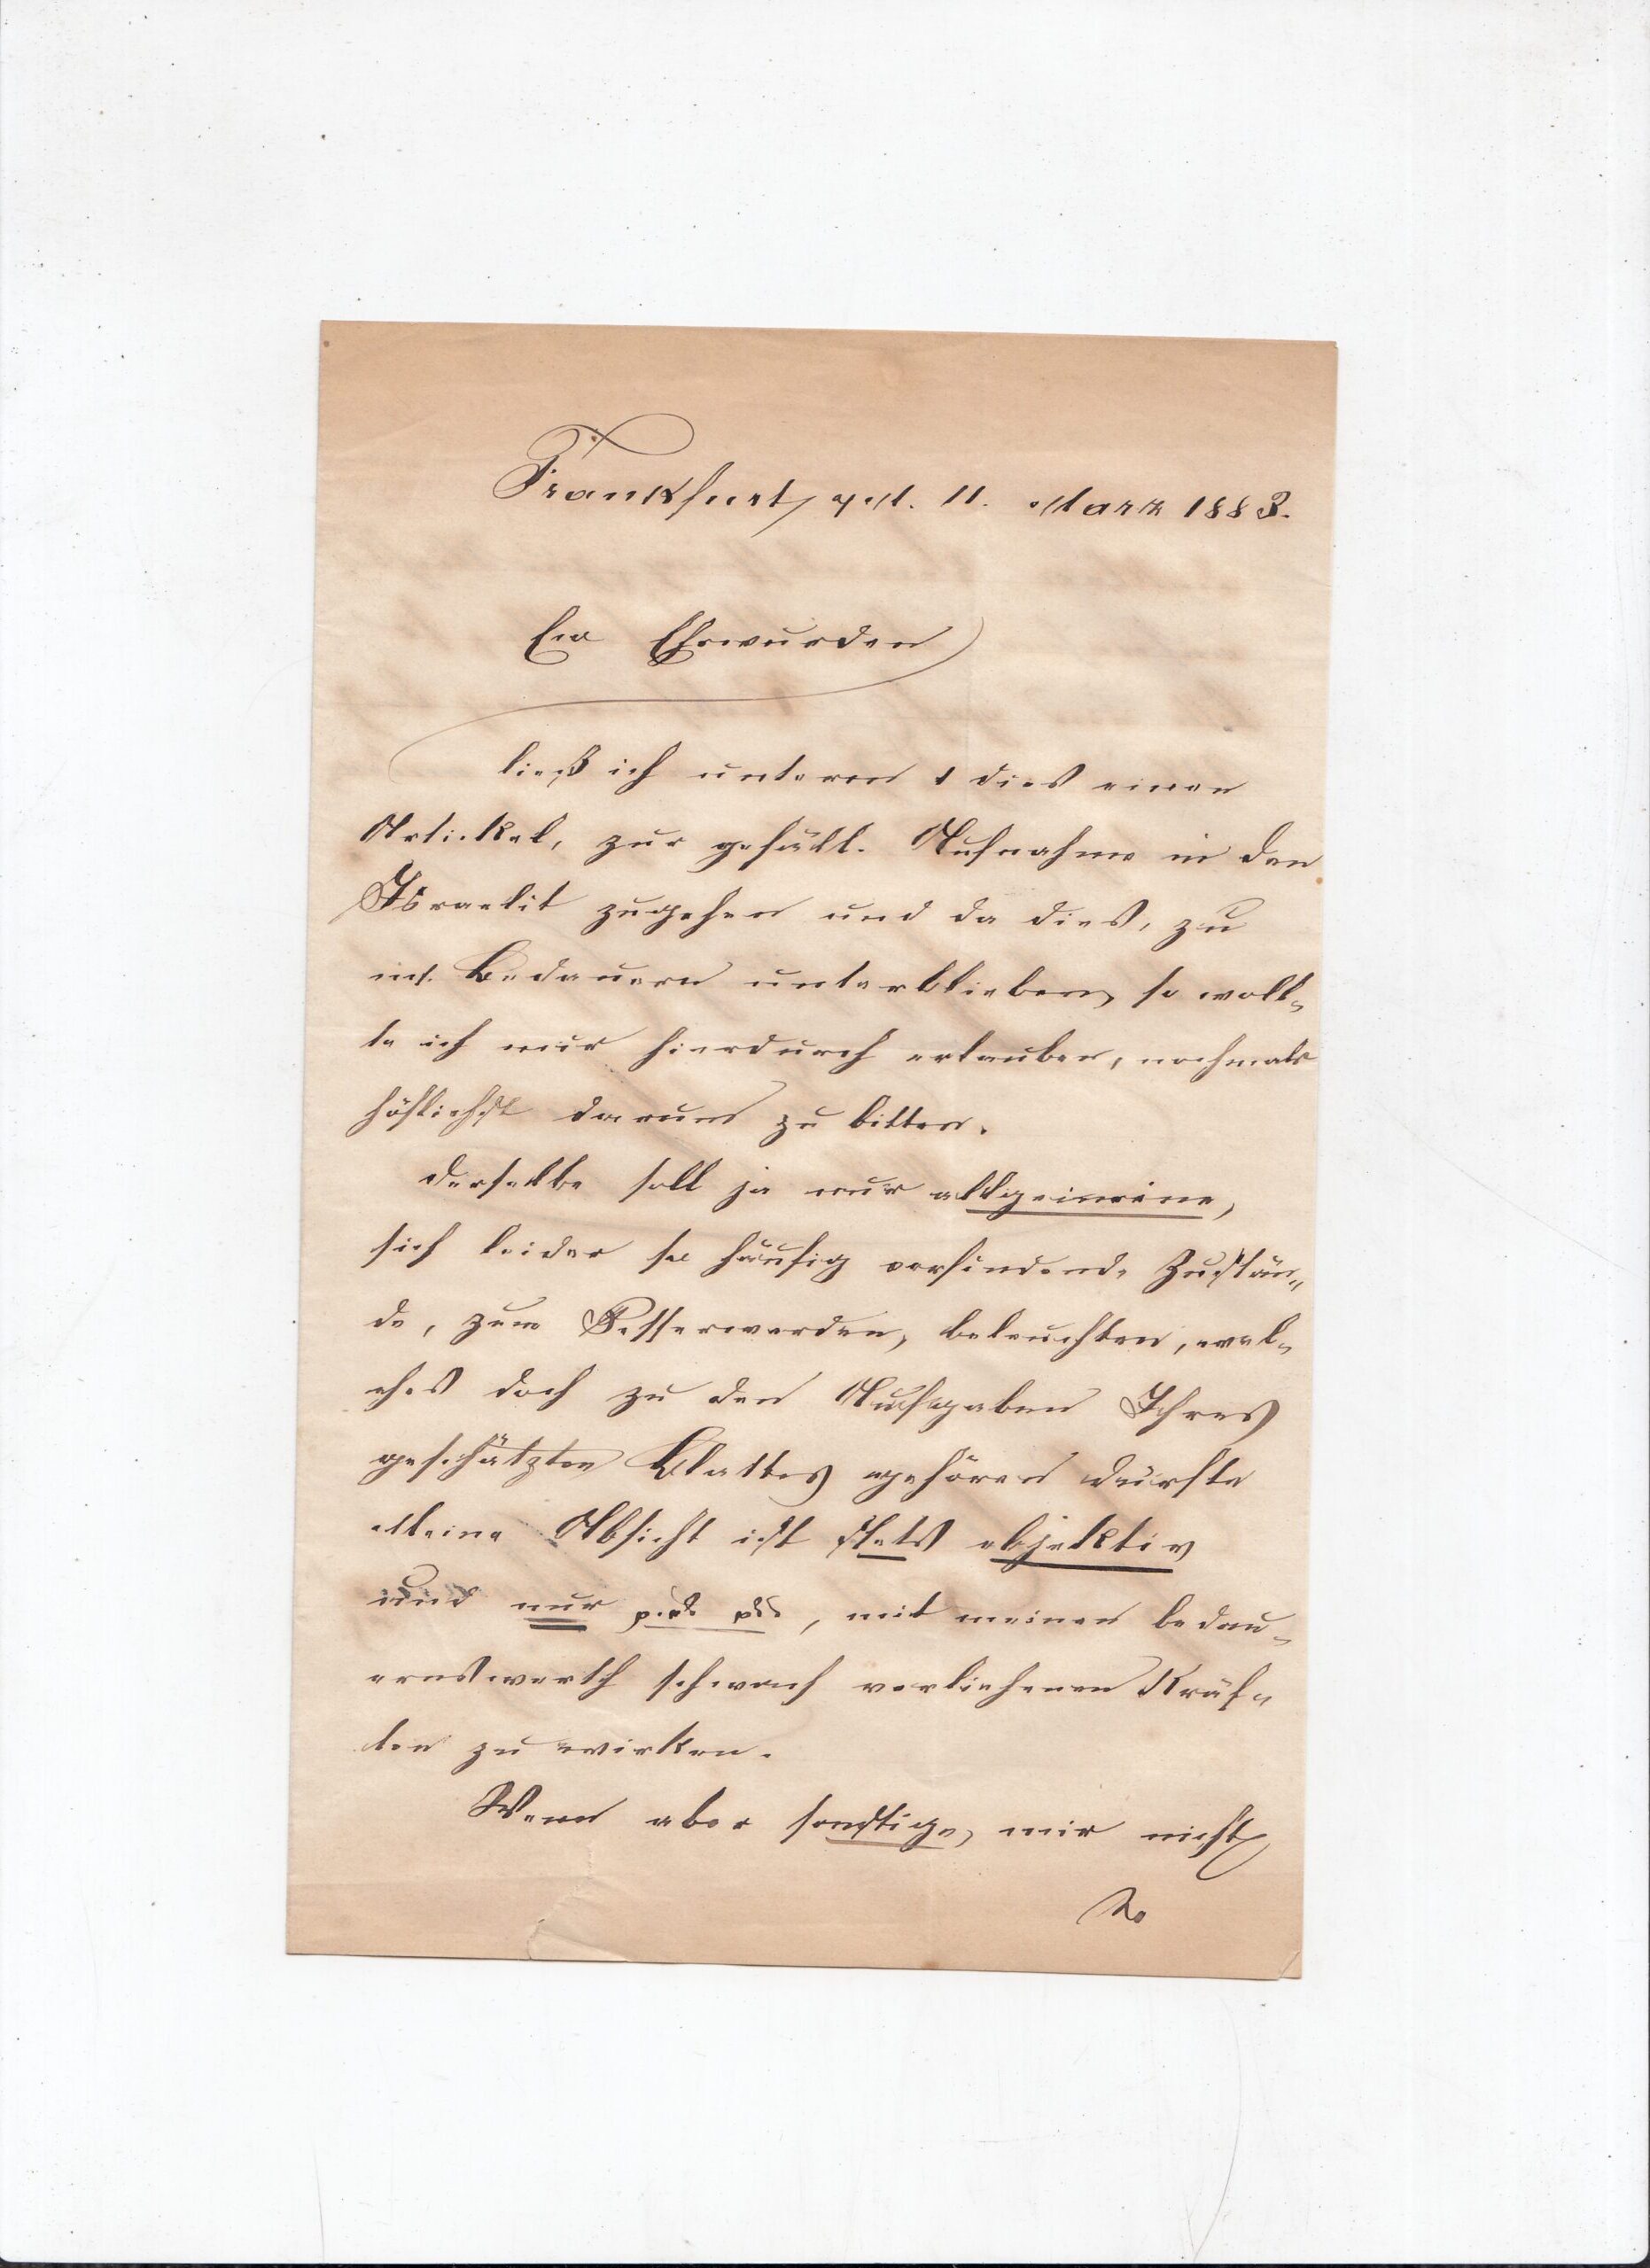 Frankfurt, a/M. 11. März 1883.
Ew Ehrwürden
ließ ich unterm 1 dies einen
Artikel, zur gefäll. Aufnahme in den
Israelit zugehen und da dies, zu
m. Bedauern unterblieben, so woll-
te ich mir hierdurch erlauben, nochmals
höflichst darum zu bitten.
Derselbe soll ja nur allgemeine,
sich leider so häufig vorfindende Zustän-
de, zum Besserwerden, beleuchten, wel-
ches doch zu den Aufgaben Ihres
geschätzten Blattes gehören dürfte
Meine Absicht ist stets objektiv
und nur, mit meinen bedau-
ernswerth schwach verliehenen Kräf-
ten zu wirken.
Wenn aber sonstige, mir nicht